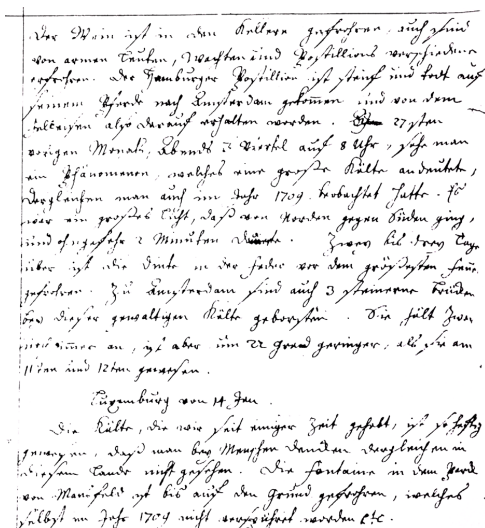 Der Wein ist in den Kellern gefrohren, auch sind
von armen Leuten, Wachten und Postillions verschiedene
erfrohren. Der Hamburger Postillion ist steif und todt auf
seinem Pferde nach Amsterdam gekommen und von dem
Felleisen also darauf erhalten worden. 27sten
vorigen Monats, Abends 3 Viertel auf 8 Uhr, sahe man
ein Phänomenon, welches eine große Kälte andeutete,
dergleichen man auch im Jahr 1709 beobachtet hatte. Es
war ein großes Licht, daß von Norden gegen Süden ging,
und ohngefehr 2 Minuten dauerte. Zwey bis drey Tage
über ist die Dinte in der Feder vor dem größesten Feuer
gefrohren. Zu Amsterdam sind auch 3 steinerne Brücken
bey dieser gewaltigen Kälte geborsten. Sie hält zwar
noch immer an, ist aber um 22 Grad geringer, als sie am
11ten und 12ten gewesen.
Luxemburg von 14 Jan.
Die Kälte, die wir seit einiger Zeit gehabt, ist so heftig
gewesen, daß man bey Menschen Denken dergleichen in
diesem Lande nicht gesehen. Die Fontaine in dem Park
von Mansfeld ist bis auf den Grund gefrohren, welches
selbst im Jahr 1709 nicht verspühret worden etc.